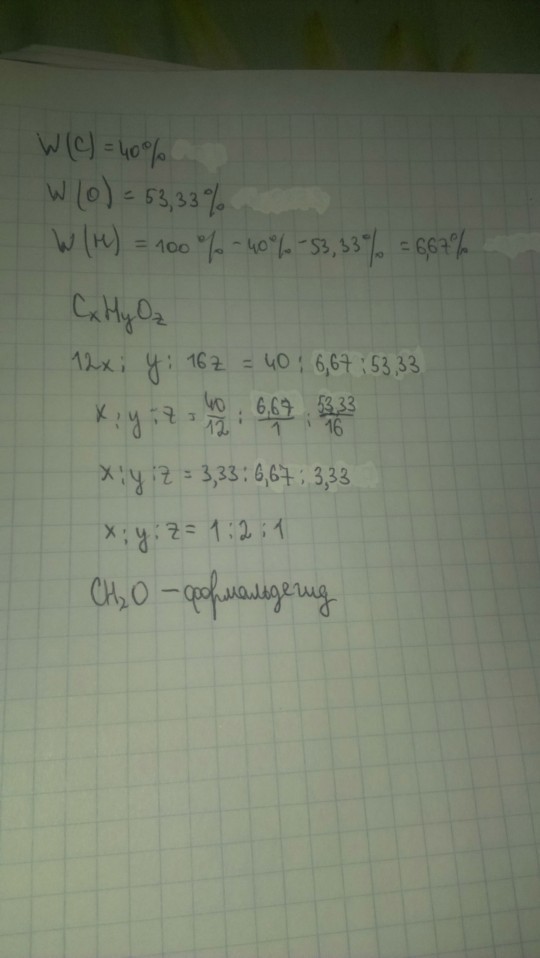 W(C) = 40%
W(O) = 53,33%
W(H) = 100% - 40% - 53,33% = 6,67%
CxHyOz
12x : y : 16z = 40 : 6,67 : 53,33
x : y : z = 40/12 : 6,67/1 : 53,33/16
x : y : z = 3,33 : 6,67 : 3,33
x : y : z = 1 : 2 : 1
CH₂O - формальдегид